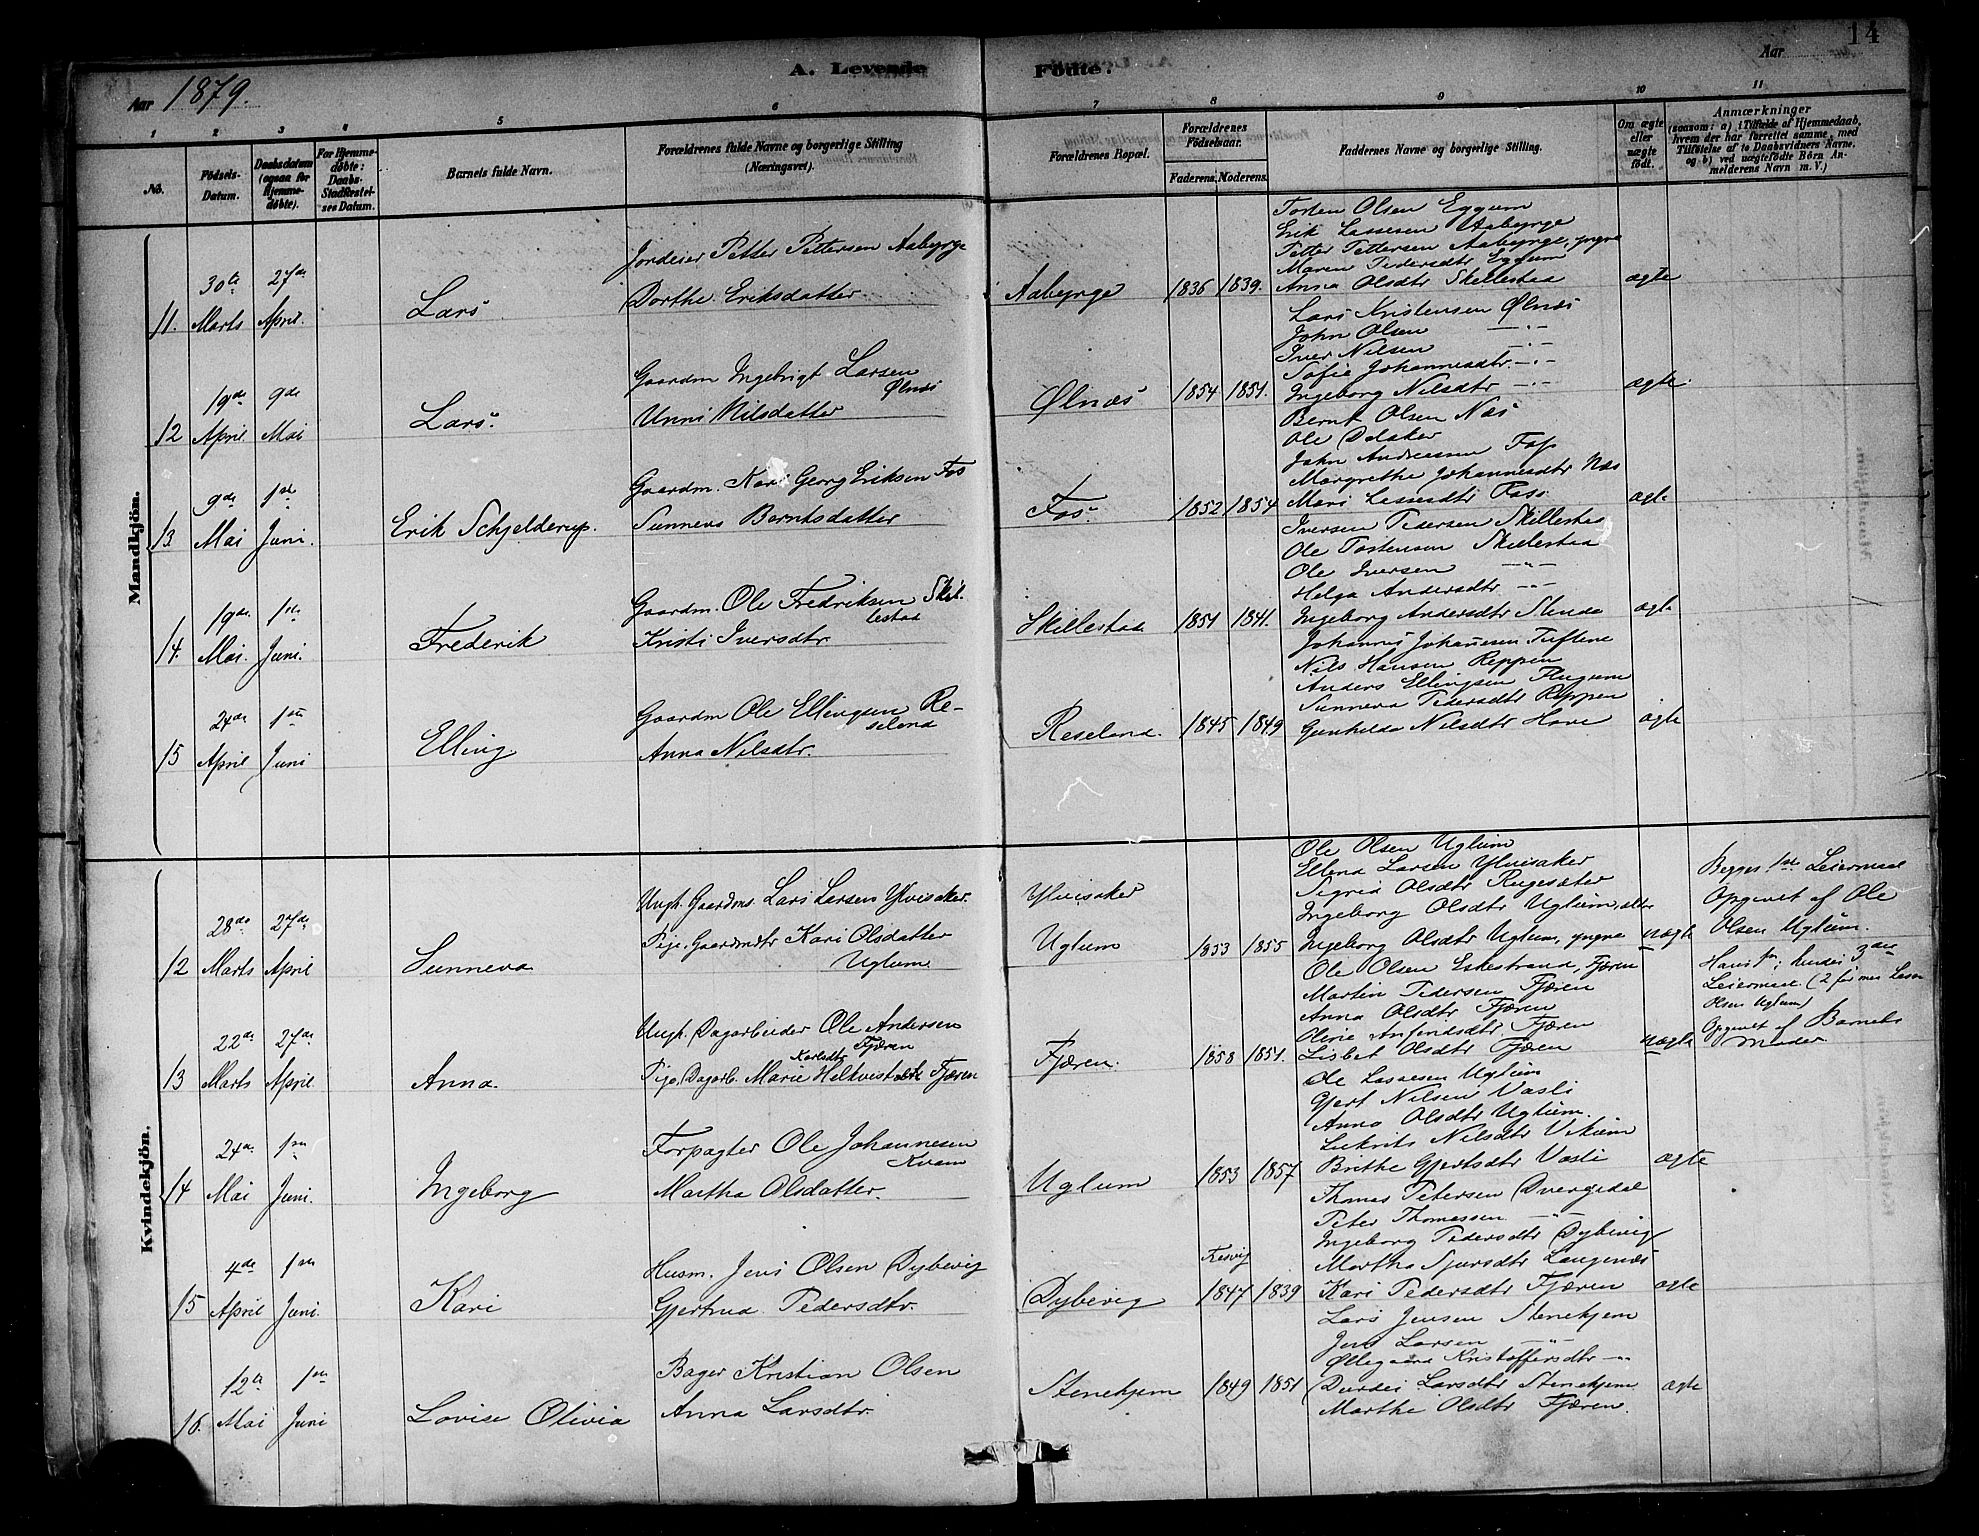 14
Aar 1879.
A. Levende Födte.
Aar
1 2 3 4 5 6 7 8 9 10 11
No.
Födsels-Datum.
Daabsdatum (ogsaa for Hjemmedöbte).
For Hjemmedöbte: Daabs-Stadfæstelses Datum.
Barnets fulde Navn.
Forældrenes fulde Navne og borgerlige Stilling (Næringsvei).
Forældrenes Bopæl.
Forældrenes Födselsaar.
Faderens. Moderens.
Faddernes Navne og borgerlige Stilling.
Om ægte eller uægte födt.
Anmærkninger
(saasom: a) i Tilfælde af Hjemmedaab, hvem der har forrettet samme, med Tilföielse af to Daabsvidners Navne, og b) ved uægtefödte Börn Anmelderens Navn m. V.)
Mandkjön.
11. 30te Marts 27de April
Lars
Jordeier Petter Pettersen Aabyrge
Dorthe Eriksdatter
Aabyrge 1836 1839.
Torsten Olsen Eggum
Erik Lassesen Aabyrge
Petter Pettersen Aabyrge, yngre
Maren Pedersdtr Eggum
Anna Olsdtr Skillestad
ægte
12 19de April 9de Mai
Lars.
Gaardm Ingebrigt Larsen Ølnæs
Unni Nilsdatter
Ølnæs 1854 1851.
Lars Kristensen Ølnæs
John Olsen —"—
Iver Nilsen —"—
Sofie Johannesdtr —"—
Ingeborg Nilsdtr —"—
ægte.
13 9de Mai 1ste Juni.
Erik Schjelderup.
Gaardm. Karl Georg Eriksen Fos
Sunneva Berntsdatter
Fos. 1852 1854
Bernt Olsen Næs
Ole Dalaker
John Andreassen Fos
Margrethe Johannesdtr Næs
Mari Lassesdtr
ægte
14. 19de Mai. 1ste Juni.
Frederik
Gaardm. Ole Fredriksen Skillestad
Kristi Iversdtr.
Skillestad 1851 1841.
Iversen Pedersen Skillestad
Ole Torstensen Skillestad
Ole Iversen —"—
Helga Andersdtr —"—
Ingeborg Andersdtr
ægte
15 24de April 1ste Juni
Elling
Gaardm Ole Ellingsen Reseland
Anna Nilsdtr.
Reseland. 1845 1849
Johannes Johannesen Tuftene
Nils Hansen Reppen
Anders Ellingsen Flugum
Sunneva Pedersdtr Reppen
Gunhilda Nilsdtr Hove
ægte
Kvindekjön.
12 28de Marts 27de April
Sunneva
Ungk. Gaardms. Lars Larsen Ylvisaker.
Pige, Gaardmdtr Kari Olsdatter Uglum.
Ylvisaker
Uglum 1853 1855
Ole Olsen Uglum
Ellend Larsen Ylvisaker
Sigrid Olsdtr Rugesæter
Ingeborg Olsdtr Uglum, eldre
Ingeborg Olsdtr Uglum, yngre
uægte
Begges 1ste Leiermaal
Opgivet af Ole
Olsen Uglum.
13 22de Marts 27de April
Anna.
Ungk. Dagarbeider Ole Andersen Fjæren
Pige, Dagarb. Marie Karlsdtr Fjæren
Fjæren. 1858 1851.
Ole Olsen Eskestrand, Fjæren
Martin Pedersen Fjæren
Anna Olsdtr Fjæren
Olivie Anfindsdtr Fjæren
Lisbet Olsdtr Fjæren
uægte
Hans 1ste; hendes 3die
Leiermaal. (2 før med Lasse
Olsen Uglum)
Opgivet af Barnets
Moder.
14 24de Mai 1ste Juni.
Ingeborg
Forpagter Ole Johannesen Kvam
Martha Olsdatter.
Uglum 1853 1857
Ole Lassesen Uglum
Gjert Nilsen Vasli
Anna Olsdtr Uglum.
Nilsdtr Vikum
Brithe Gjertsdtr Vasli
ægte
15 4de April 1ste Juni.
Kari
Husm. Jens Olsen Dybevig
Gjertrud Pedersdtr.
Dybevig 1847 1839
Thomas Petersen Dvergedal
Peter Thomassen —"—
Ingeborg Pedersdtr Dybevig
Martha Sjursdtr Langenæs
Kari Pedersdtr Fjæren
ægte
16. 12te Mai 1ste Juni
Lovise Olivia
Bager Kristian Olsen
Anna Larsdtr.
Stenehjem 1849 1851
Lars Jensen Stenehjem
Jens Larsen —"—
Øllegaard Kristoffersdtr —"—
Durdei Larsdtr Stenehjem
Marthe Olsdtr Fjæren.
ægte